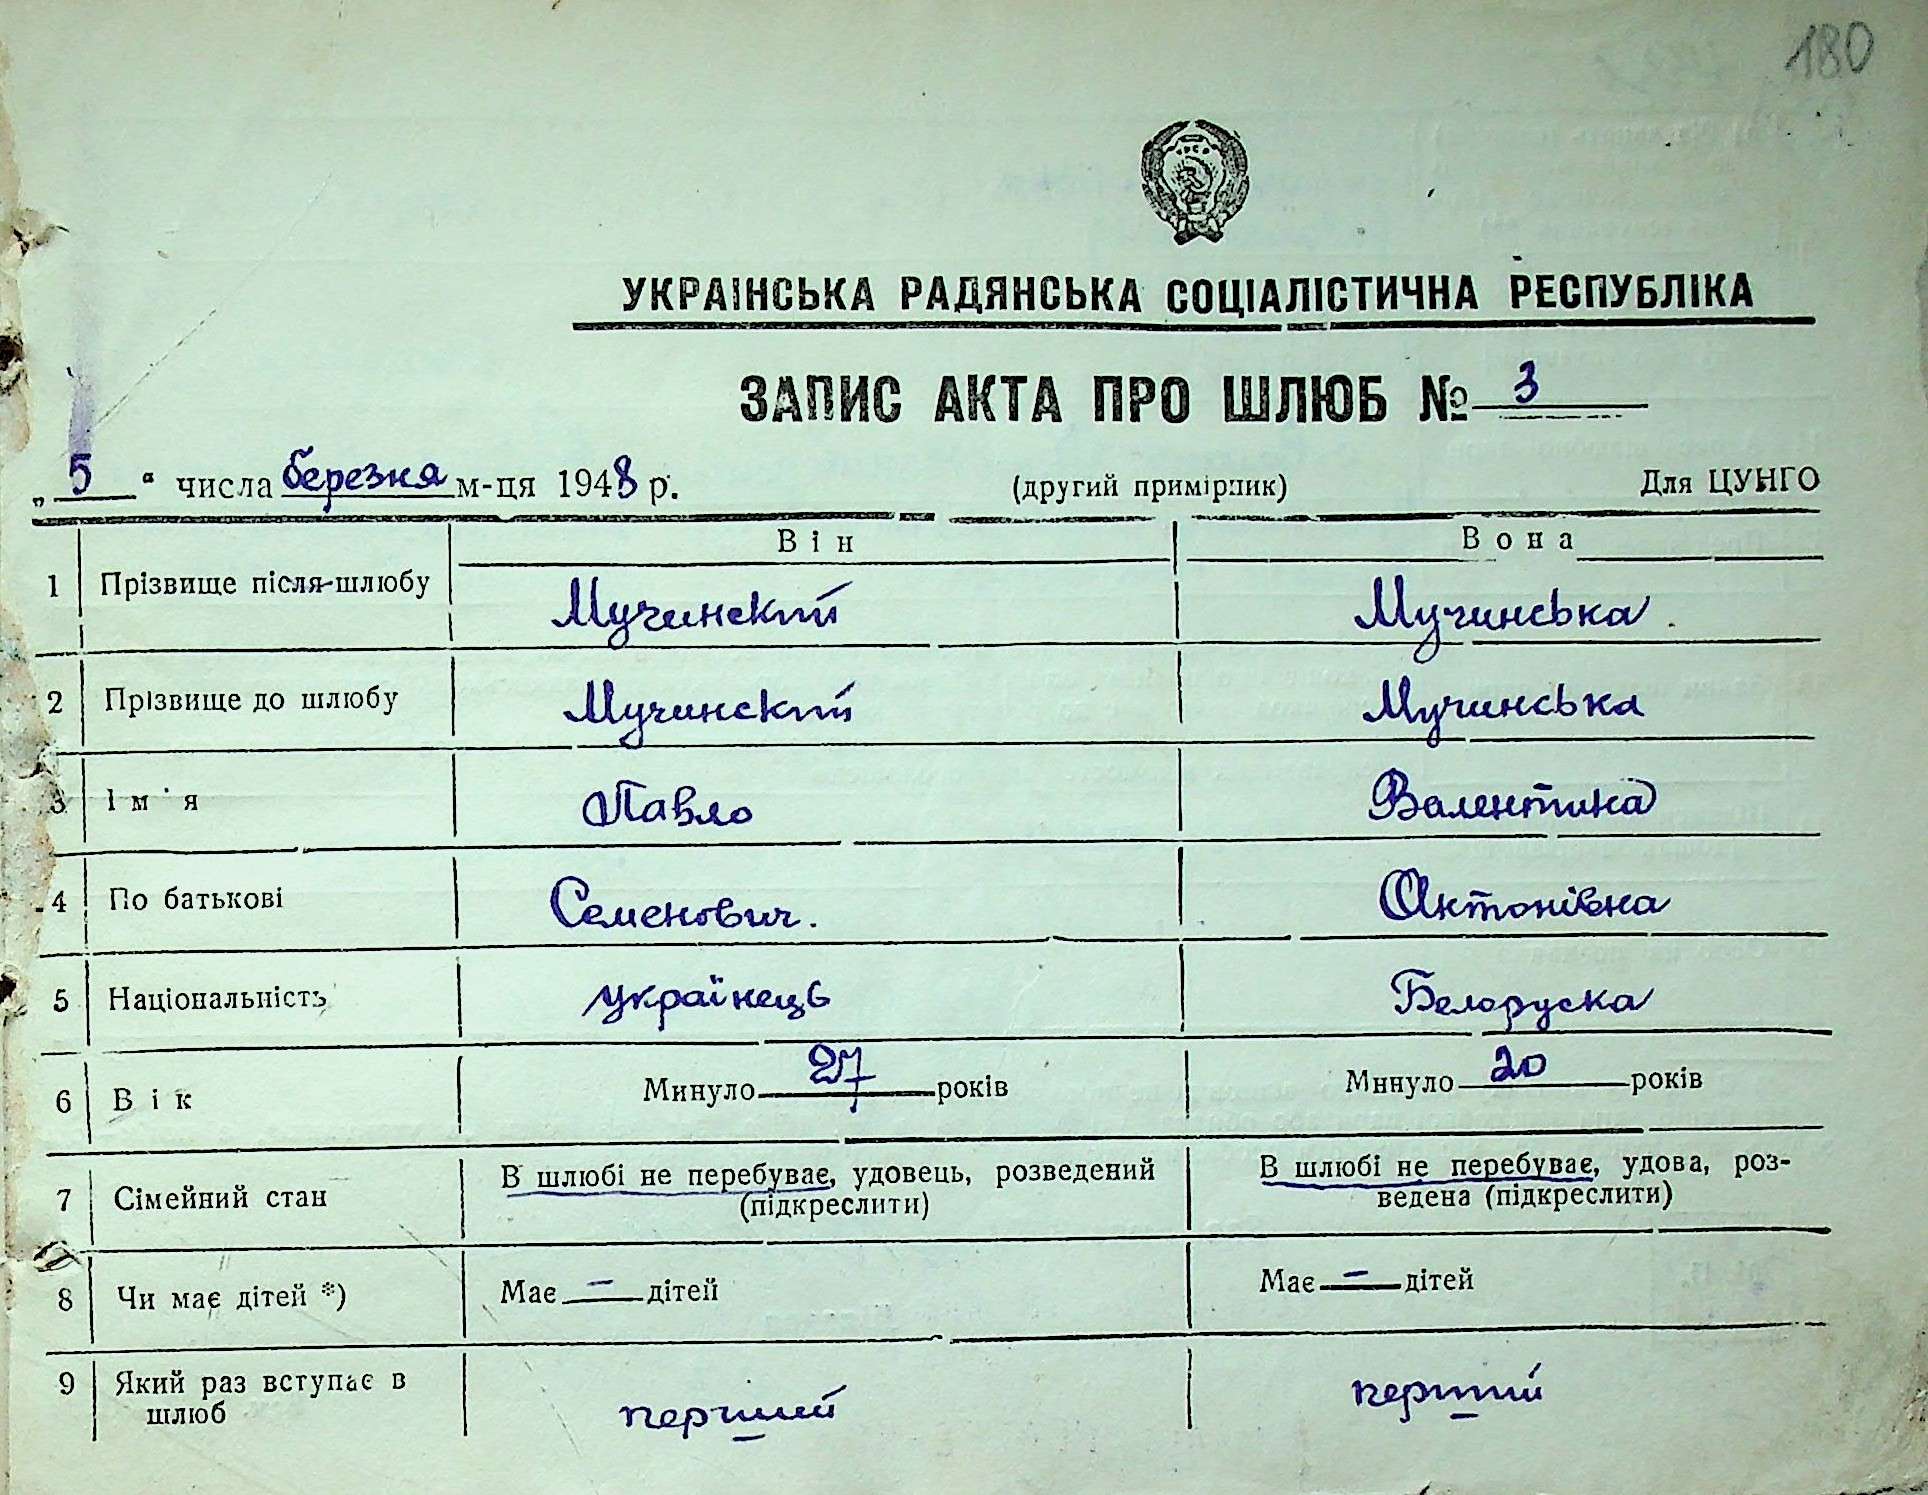 180
УКРАЇНСЬКА РАДЯНСЬКА СОЦІАЛІСТИЧНА РЕСПУБЛІКА
ЗАПИС АКТА ПРО ШЛЮБ № 3
„5“ числа березня м-ця 1948 р. (другий примірник) Для ЦУНГО
Він Вона
1 Прізвище після шлюбу Мучинский Мучинська
2 Прізвище до шлюбу Мучинский Мучинська
3 Ім'я Павло Валентина
4 По батькові Семенович. Антонівна
5 Національність українець Белоруска
6 Вік Минуло 27 років Минуло 20 років
7 Сімейний стан В шлюбі не перебуває, удовець, розведений (підкреслити) В шлюбі не перебуває, удова, роз-
ведена (підкреслити)
8 Чи має дітей *) Має — дітей Має — дітей
9 Який раз вступає в шлюб перший перший